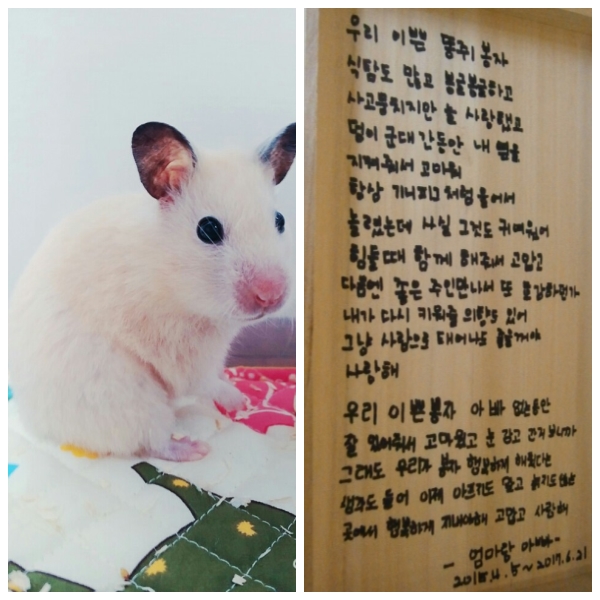 우리 이쁜 뚱쥐 봉자
식탐도 많고 붕굴붕굴하고
사고뭉치지만 늘 사랑했고
덤이 군대 간동안 내 옆을
지켜줘서 고마워
항상 기니피그처럼 울어서
놀렸는데 사실 그것도 귀여웠어
힘들때 함께 해줘서 고맙고
다음엔 좋은 주인만나서 또 호강하던가
내가 다시 키워줄 의향도 있어
그냥 사람으로 태어나도 좋을게야
사랑해
우리 이쁜봉자 아빠 없는동안
잘 있어줘서 고마웠고 눈 감고 간거 보니까
그래도 우리가 봉자 행복하게 해줬다는
생각도 들어 이제 아프지도 말고
곳에서 행복하게 지내야해 고맙고 사랑해
- 엄마랑 아빠 -
4.5~2017.6.21